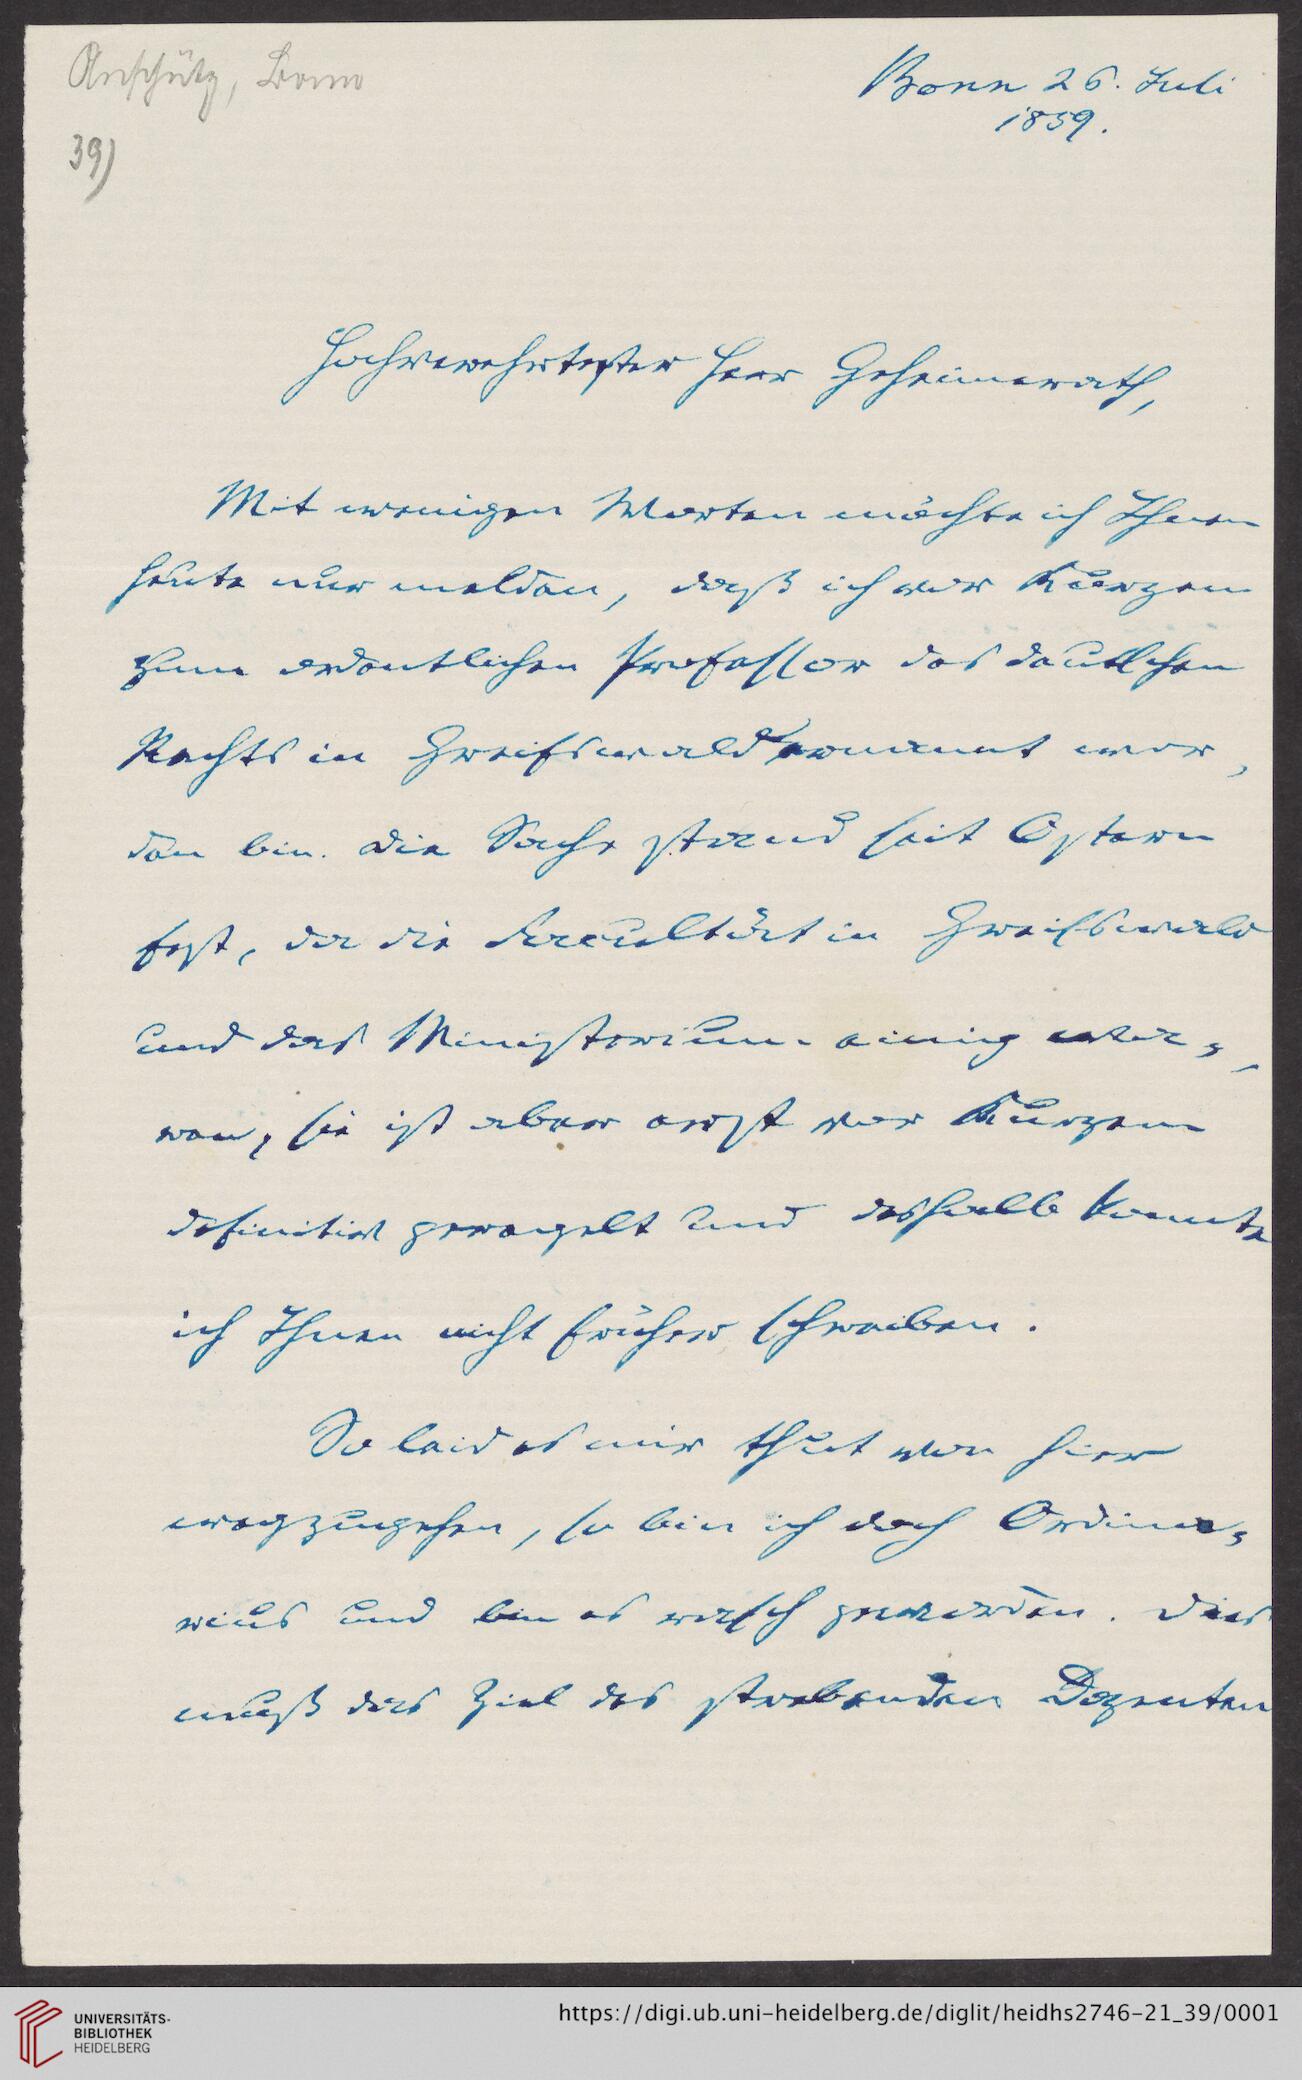 Anschütz, Bonn
39)
Bonn 26. Juli
1859.
Hochverehrtester Herr Geheimerath,
Mit wenigen Worten möchte ich Ihnen
heute nur melden, daß ich vor Kurzem
zum ordentlichen Professor des deutschen
Rechts in Greifswald ernannt wor,
den bin. Die Sache stand seit Ostern
fest, da die Facultät in Greifswald
und das Ministerium einig wa,
ren, sie ist aber erst vor Kurzem
definitiv geregelt und deshalb konnte
ich Ihnen nicht früher schreiben.
So leid es mir thut von hier
wegzugehen, so bin ich doch Ordina,
rius und bin es rasch geworden. Dies
muß das Ziel des strebenden Dozenten
UNIVERSITÄTS-
BIBLIOTHEK
HEIDELBERG
https://digi.ub.uni-heidelberg.de/diglit/heidhs2746-21_39/0001